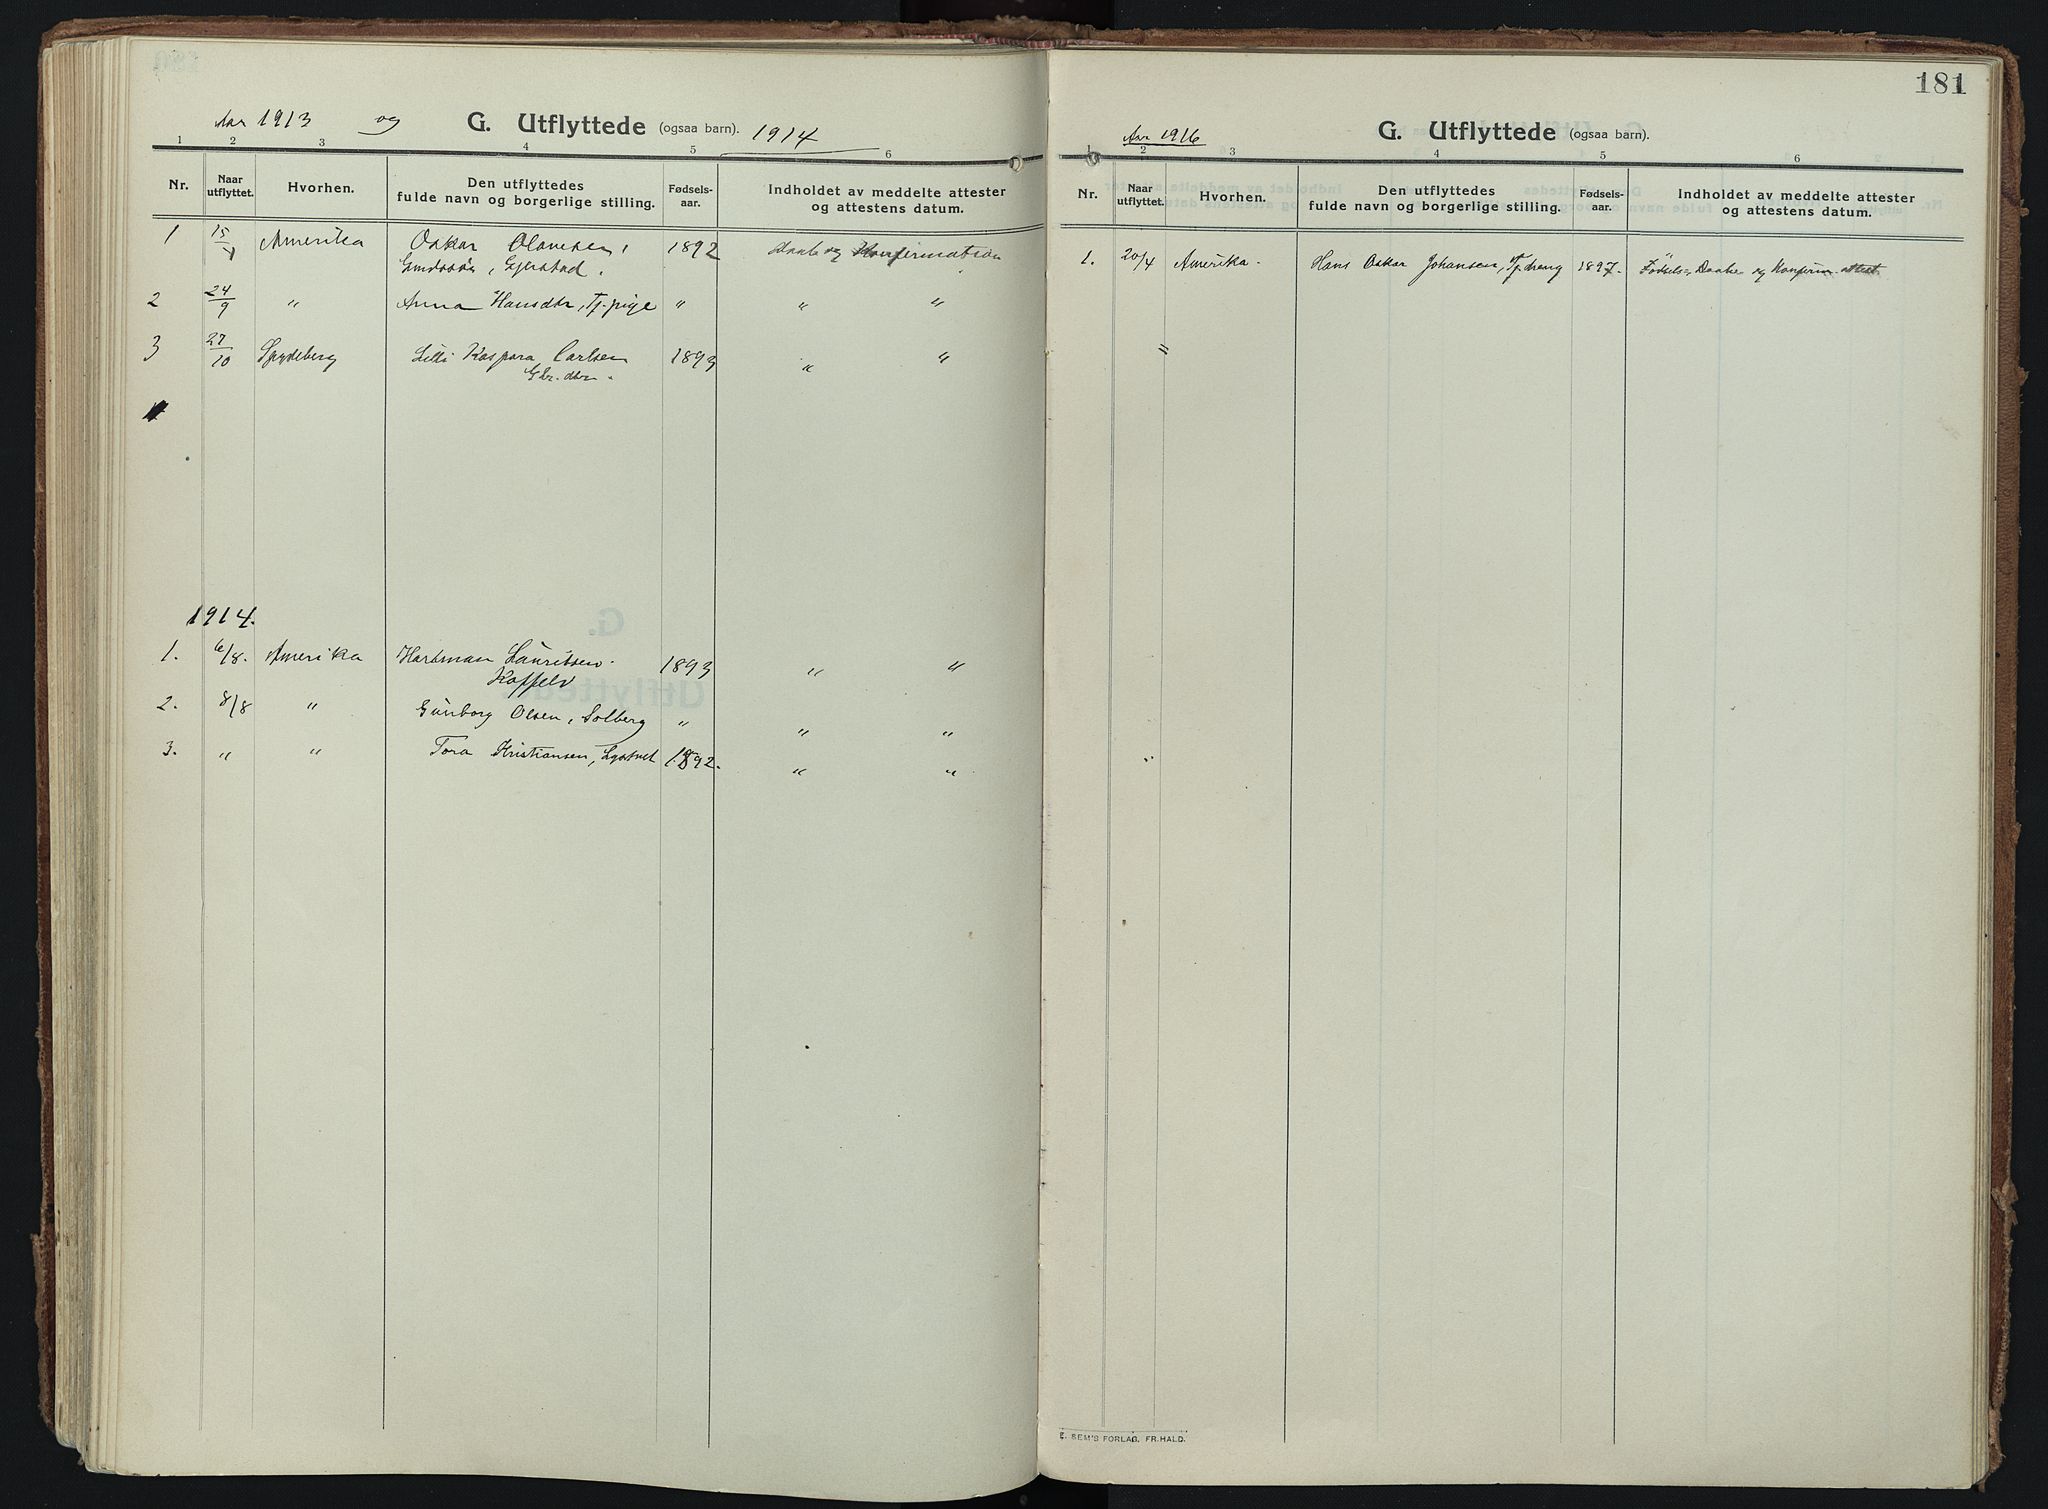 Aar 1913 og G. Utflyttede (ogsaa barn). 1914
1 2 3 4 5 6
Nr. Naar utflyttet. Hvorhen. Den utflyttedes fulde navn og borgerlige stilling. Fødsels-aar. Indholdet av meddelte attester og attestens datum.
1 15/ Amerika Oskar Olavesen, 1892 Daab og Konfirmation
Gjerstad.
2 24/9 " Anna Hansdtr, Tj. pige " " "
3 27/10 Spydeberg Kaspara Carlsen 1893 " "
1914.
1. 6/8. Amerika Hartman Lauritsen. 1893 " "
2. 8/8 " Gunborg Olsen, Solberg " " "
3. " " Tora Kristiansen, 1892. " "
181
Aar 1916 G. Utflyttede (ogsaa barn).
1 2 3 4 5 6
Nr. Naar utflyttet. Hvorhen. Den utflyttedes fulde navn og borgerlige stilling. Fødsels-aar. Indholdet av meddelte attester og attestens datum.
1. 20/4 Amerika. Hans Oskar Johansen, Tj. dreng 1897. Fødsels-, Daabs- og Konfirm. attest
E. SEM'S FORLAG, FR.HALD.